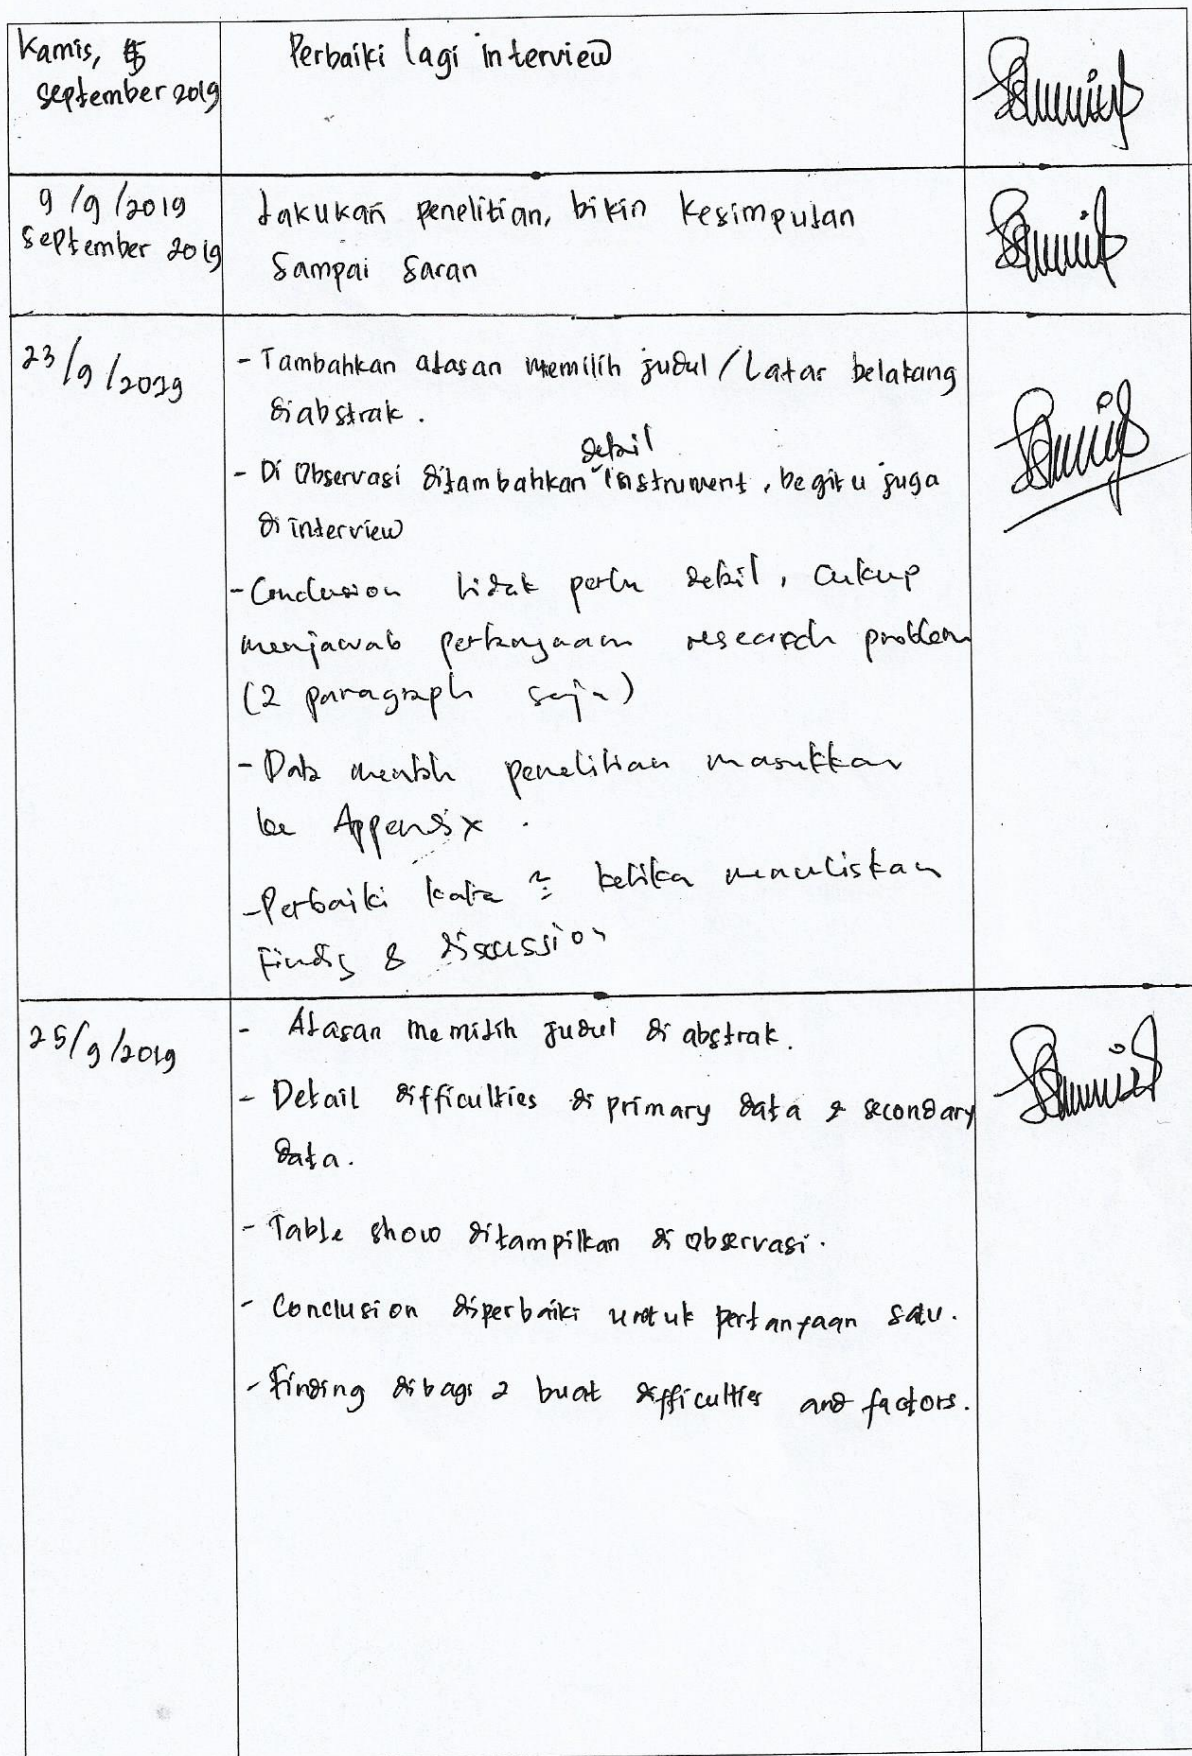 Kamis, 5
September 2019
Perbaiki lagi interview
9/9/2019
September 2019
Lakukan penelitian, bikin kesimpulan
Sampai saran
23/9/2019
- Tambahkan alasan memilih judul / Latar belakang
diabstrak.
detail
- Di Observasi ditambahkan instrument, begitu juga
di interview
- Conclusion tidak perlu detil, cukup
menjawab pertanyaan research problem
(2 paragraph saja)
- Data mentah penelitian masukkan
ke Appendix.
- Perbaiki kata ketika menuliskan
Finding & discussion
25/9/2019
- Alasan memilih judul di abstrak.
- Detail difficulties di primary data & secondary
data.
- Table show ditampilkan di observasi.
- Conclusion diperbaiki untuk pertanyaan satu.
- Finding dibagi 2 buat difficulties and factors.